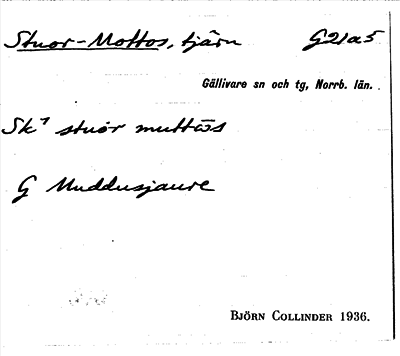 Stuor-Mottos, tjärn G21a5
Gällivare sn och tg, Norrb. län.
Sk⁷ stuor muttōs
G Muddusjaure
BJÖRN COLLINDER 1936.